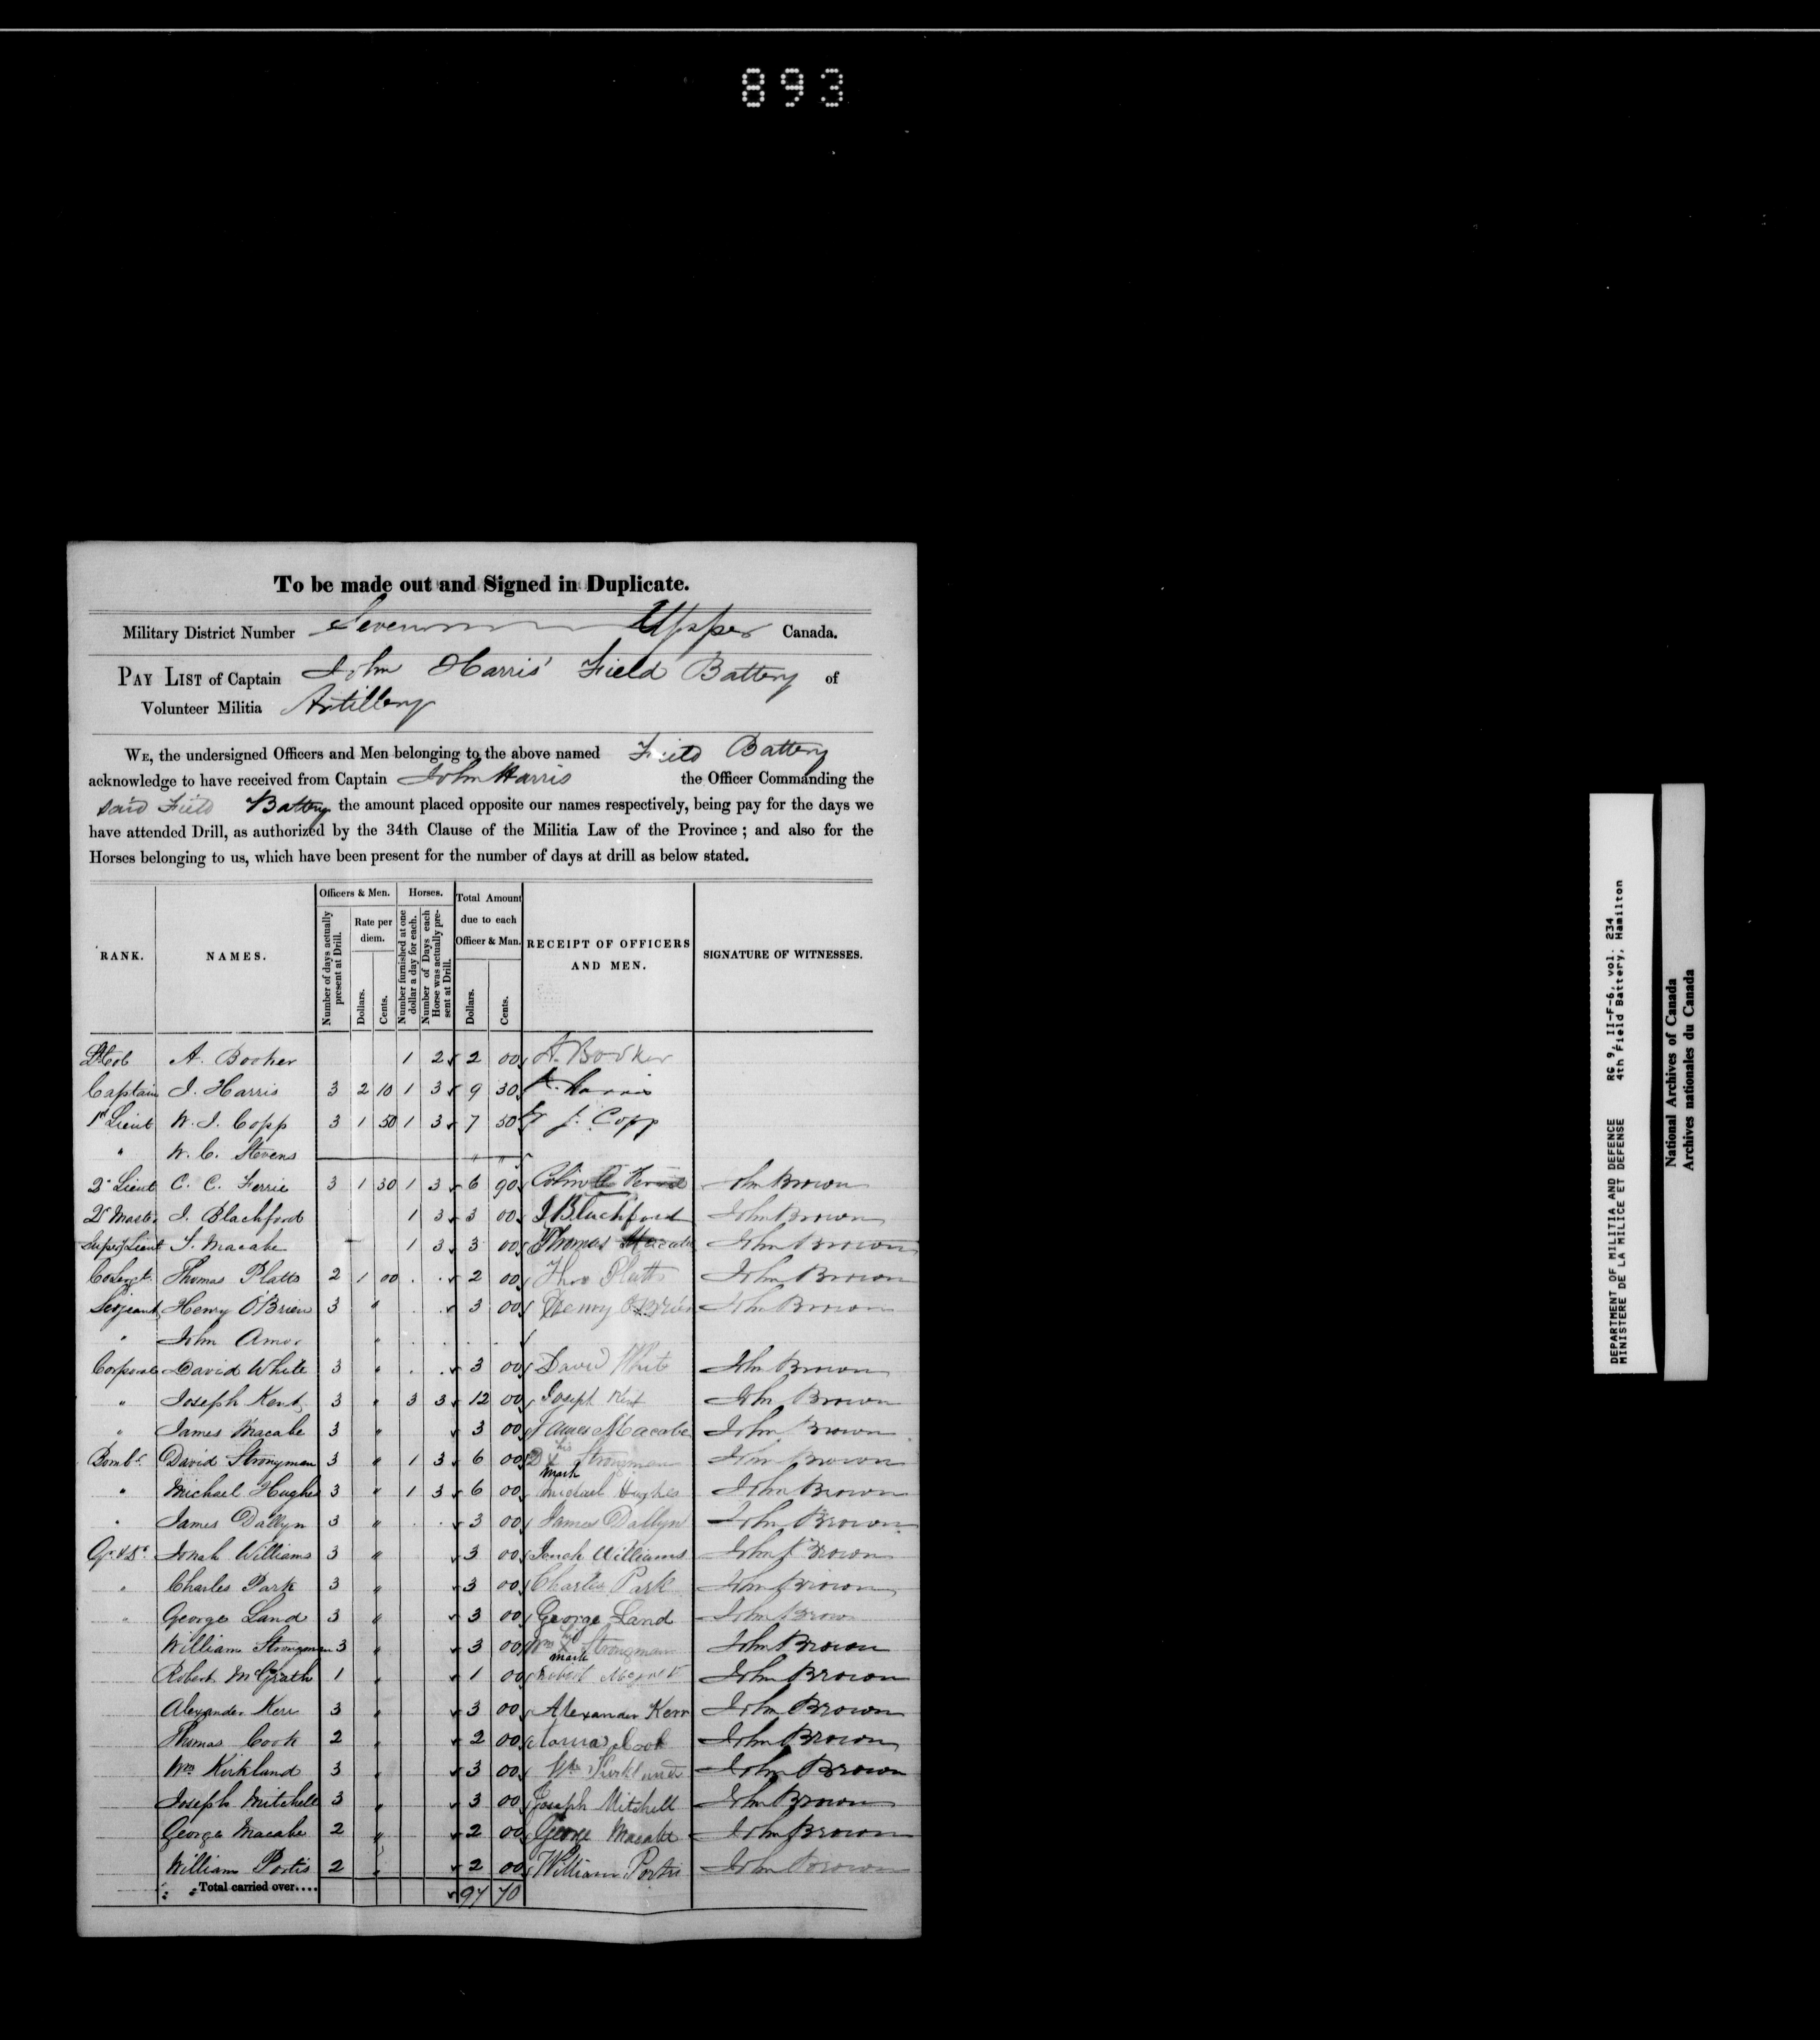 893
To be made out and Signed in Duplicate.
Military District Number Seven Upper Canada.
PAY LIST of Captain John Harris' Field Battery of
Volunteer Militia Artillery
WE, the undersigned Officers and Men belonging to the above named Field Battery
acknowledge to have received from Captain John Harris the Officer Commanding the
said Field Battery the amount placed opposite our names respectively, being pay for the days we
have attended Drill, as authorized by the 34th Clause of the Militia Law of the Province; and also for the
Horses belonging to us, which have been present for the number of days at drill as below stated.
RANK. NAMES. Officers & Men. Horses. Total Amount due to each Officer & Man. RECEIPT OF OFFICERS AND MEN. SIGNATURE OF WITNESSES.
Number of days actually present at Drill. Rate per diem. Dollars. Cents. Number furnished at one dollar a day for each. Number of Days each Horse was actually present at Drill. Dollars. Cents.
Lt Col A. Booker 1 2 2 00 A. Booker
Captain J. Harris 3 2 10 1 3 9 30 J. Harris
1st Lieut W. J. Copp 3 1 50 1 3 7 50 W J. Copp
" W. C. Stevens " "
2d Lieut C. C. Ferrie 3 1 30 1 3 6 90 Colin C Ferrie John Brown
Qr Master J. Blachford 1 3 3 00 J Blachford John Brown
Supery Lieut T. Macabe 1 3 3 00 Thomas Macabe John Brown
Co Sergt. Thomas Platts 2 1 00 2 00 Thos Platts John Brown
Sergeant Henry O'Brien 3 " 3 00 Henry O'Brien John Brown
" John Amor "
Corporal David White 3 " 3 00 David White John Brown
" Joseph Kent 3 " 3 3 12 00 Joseph Kent John Brown
" James Macabe 3 " 3 00 James Macabe John Brown
Bombr. David Strongman 3 " 1 3 6 00 D his x mark Strongman John Brown
" Michael Hughes 3 " 1 3 6 00 Michael Hughes John Brown
" James Dallyn 3 " 3 00 James Dallyn John Brown
Gr. & Dr. Jonah Williams 3 " 3 00 Jonah Williams John Brown
" Charles Park 3 " 3 00 Charles Park John Brown
" George Land 3 " 3 00 George Land John Brown
William Strongman 3 " 3 00 Wm his x mark Strongman John Brown
Robert McGrath 1 " 1 00 Robert McGrath John Brown
Alexander Kerr 3 " 3 00 Alexander Kerr John Brown
Thomas Cook 2 " 2 00 Cook John Brown
Wm Kirkland 3 " 3 00 Wm Kirkland John Brown
Joseph Mitchell 3 " 3 00 Joseph Mitchell John Brown
George Macabe 2 " 2 00 George Macabe John Brown
William Portis 2 " 2 00 William Portis John Brown
Total carried over.... 97 70
DEPARTMENT OF MILITIA AND DEFENCE RG 9, II-F-6, vol. 234
MINISTERE DE LA MILICE ET DEFENSE 4th Field Battery, Hamilton
National Archives of Canada
Archives nationales du Canada